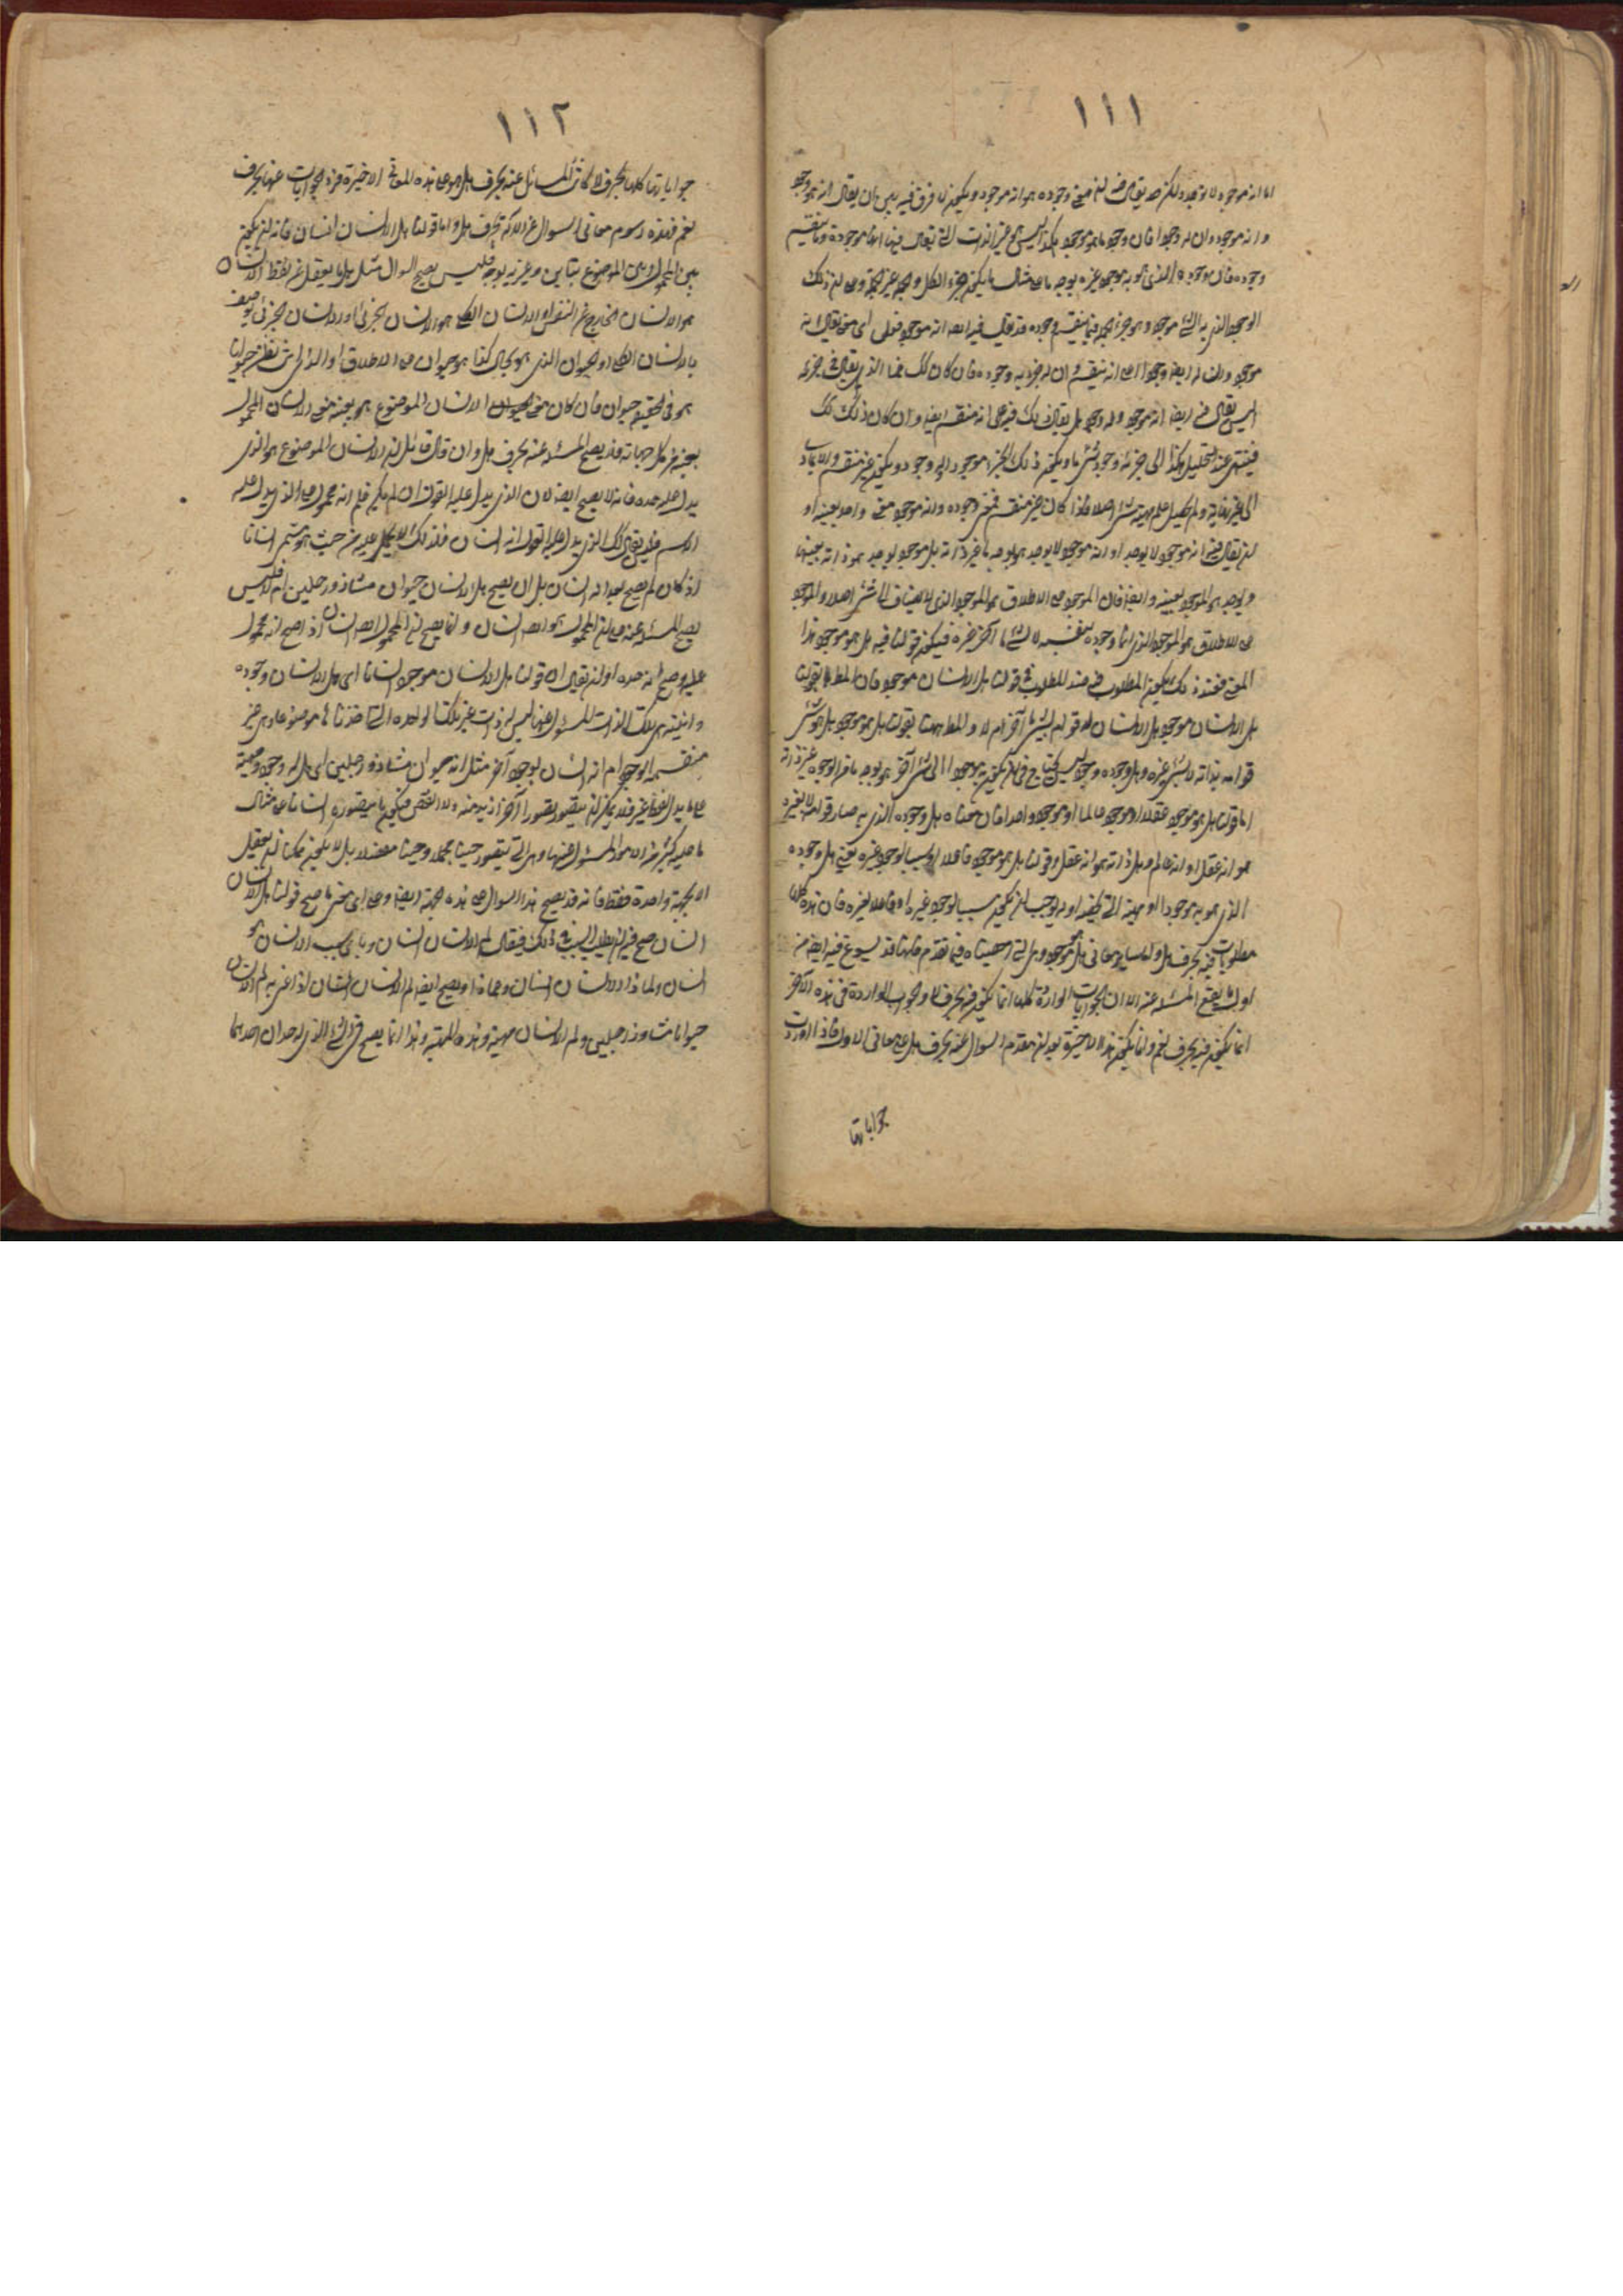 ١١١
اما انه موجود لا يوجد لكن قد يقال فيه ان معنى وجوده هو انه موجود ويكون لا فرق فيه بين ان يقال انه موجود
وانه موجود وان له وجودا فان وجود ما هو موجود هكذا ليس شيئا غير الذات التى يقال فيها انها موجودة وما ينقسم
وجوده فان وجوده الذى هو به موجود غيره بوجه ما على مثال ما يكون جزء الكل والجملة غير الجملة وعلى ان ذلك
الوجود الذى به الشئ موجود وهو جزء الجملة فيما ينقسم وجوده قد يقال فيه ايضا انه موجود فعلى اى معنى يقال انه
موجود وان له ايضا وجودا اعلى انه ينقسم وان له جزءا به وجوده فان كان كذلك فما الذى يقال فى جزئه
اليس يقال فيه ايضا انه موجود وله وجود هل يقال ذلك فيه على انه منقسم ايضا وان كان ذلك كذلك
فينتهى عند التحليل هكذا الى جزء له وجود بشئ ما ويكون ذلك الجزء موجودا وله وجود ويكون غير منقسم والا تمادى
الى غير نهاية ولم يحصل علم ماهية شئ اصلا فاذا كان غير منقسم فمعنى وجوده وانه موجود معنى واحد بعينه او
ان يقال فيه انه موجود لا يوجد او انه موجود لا بوجود يوجد به ما غير ذاته بل موجود يوجد هو ذاته بعينها
ووجود هو الموجود بعينه وايضا فان الموجود على الاطلاق هو الموجود الذى لا يضاف الى شئ اصلا والموجود
على الاطلاق هو الموجود الذى انما وجوده بنفسه لا بشئ ما آخر غيره فيكون قولنا فيه هل هو موجود هذا
المعنى فعند ذلك يكون المطلوب فيه ضد المطلوب فى قولنا هل الانسان موجود فان المطلوب بقولنا
هل الانسان موجود هل الانسان له قوام بشئ ما آخر ام لا والمطلوب ههنا بقولنا هل هو موجود هل هو شئ
قوامه بذاته لا بشئ غيره وهل وجوده وجود ليس يحتاج فى ان يكون به موجودا الى شئ آخر هو بوجه ما من الوجوه غير ذاته
اما قولنا هل هو موجود عقلا او موجود عالما او موجود واحدا فان معناه هل وجوده الذى به صار قوامه لا بغيره
هو انه عقل او انه عالم وهل ذاته هو انه عقل وقولنا هل هو موجود فاعلا او سببا لوجود غيره يعنى هل وجوده
الذى هو به موجود او ماهيته التى تخصه او له يوجب ان يكون سببا لوجود غيره او فاعلا لغيره فان هذه كلها
مطلوبات فيه بحرف هل ولما سائر معانى هل هو موجود وهى التى احصيناه فيما تقدم فانها قد يسوغ فيه ايضا من
اول ما يقع المسئلة عنه الا ان الجوابات الواردة كلها انما يكون فيه بحرف لا والجواب الواردة فى هذه الاخر
انما يكون فيه بحرف نعم وانما يكون هذه الاخيرة بعد ان تقدم السؤال عنه بحرف هل على معانى الاول فاذا اوردت
جواباتها
١١٢
جواباتها كلها بحرف لا كانت المسائل عنه بحرف هل هو على هذه المعانى الاخيرة فترد الجوابات عنها بحرف
نعم فهذه رسوم معانى السؤال عن الاله بحرف هل واما قولنا هل الانسان انسان فانه ان يكون
بين المحمول وبين الموضوع تباين وغيرية بوجه فليس يصح السؤال مثل هل ما يعقل عن لفظ الانسان
هو الانسان الخارج عن النفس او الانسان الكلى هو الانسان الجزئى او الانسان الجزئى يوصف
بالانسان الكلى او الحيوان الذى هو بحال كذا هو حيوان على الاطلاق او الذى انت تظن حيوانا
هو فى الحقيقة حيوان فان كان معنى الحيوان الانسان الموضوع هو بعينه معنى الانسان المحمول
بعينه من كل جهاته فلا يصح المسئلة عنه بحرف هل وان قال قائل ان الانسان الموضوع هو الذى
يدل عليه حده فانه لا يصح ايضا لان الذى يدل عليه القول ان لم يكن علم انه محمول على الذى يدل عليه
الاسم فلا يقال لذلك الذى يدل عليه القول انه انسان فلذلك لا يحمل عليه من حيث هو مسمى انسانا
اذ كان لم يصح بعد انه انسان بل ان يصح هل الانسان حيوان مشاء ذو رجلين ام لا فليس
يصح المسئلة عنه على ان المحمول هو ايضا انسان وانما يصح ان المحمول ايضا انسان اذ صح انه محمول
عليه وصح انه حده او ان يقال ان قولنا هل الانسان موجود انسانا اى هل الانسان وجوده
وانيته هى تلك الذات المسئول عنها ليس له ذات غير تلك الواحدة التى اخذناها موضوعا وهى غير
منقسمة الوجود ام انه انسان بوجود آخر مثل انه حيوان مشاء ذو رجلين اى هل له وجود وماهية
على ما يدل لفظه غير فلا يمكن ان يتصور تصورا آخر ازيد منه ولا انقص فيكون ما يتصور انسانا على مثال
ما عليه كثير من الامور المسئول عنها وهى التى يتصور حينا مجملا وحينا مفصلا بل لا يكون ممكنا ان يعقل
الا بجهة واحدة فقط فانه قد يصح هذا السؤال على هذه الجهة ايضا وعلى اى معنى ما صح قولنا هل الانسان
انسان صح فيه ان يطلب السبب فى ذلك فيقال لم الانسان انسان وبأى سبب الانسان هو
انسان ولماذا الانسان انسان وعماذا ويصح ايضا لم الانسان انسان اذا عنى به لم الانسان
حيوانا مشاء ذا رجلين ولم الانسان ماهيته هذه الماهية وهذا انما يصح فى الشئ الذى له حدان احدهما